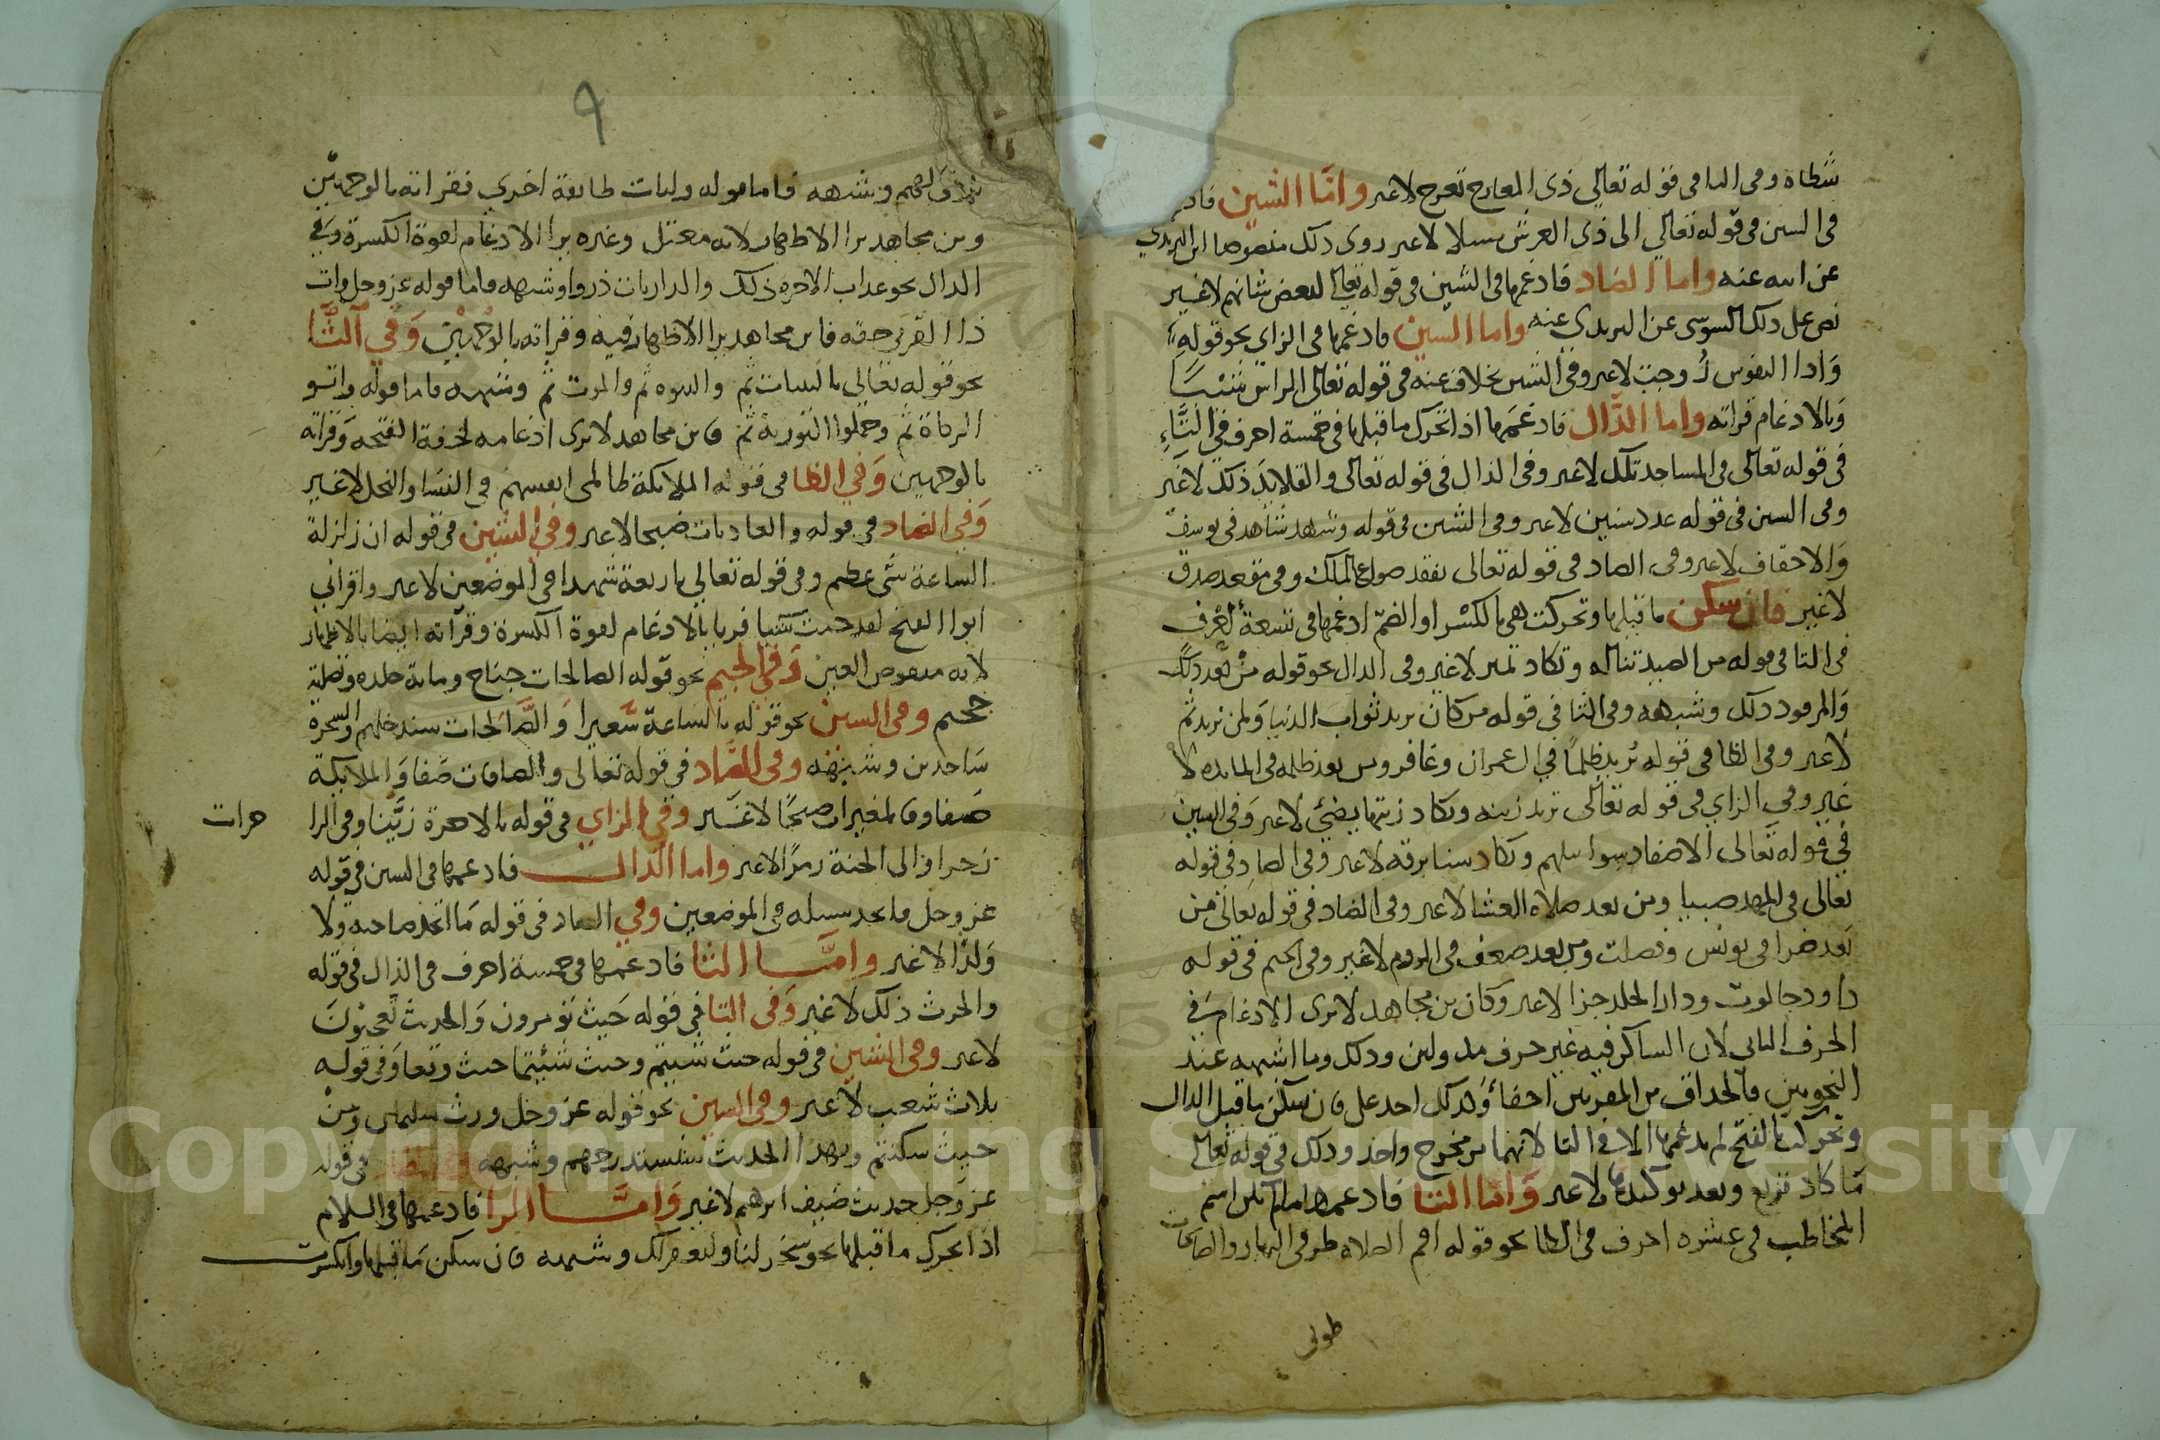 شطاه وفى التا فى قوله تعالي ذى المعارج تعرج لا غير وامّا الشين فادغمها
فى السين فى قوله تعالي الى ذى العرش سبيلا لا غير روى ذلك منصوصا ابن اليزيدي
عن ابيه عنه واما الضاد فادغمها فى الشين فى قوله تعالى لبعض شانهم لا غير
نص على ذلك السوسى عن اليزيدى عنه واما السين فادغمها فى الزاي نحو قوله
وَاذا النفوس زُوجت لا غير وفى الشين بخلاف عنه فى قوله تعالى الراس شيبًا
وبالادغام قراته واما الدَّال فادغمها اذا تحرك ما قبلها فى خمسة احرف فى التَّاءِ
فى قوله تعالى فى المساجد تلك لا غير وفى الذال فى قوله تعالى والقلايد ذلك لا غير
وفى السين فى قوله عدد سنين لا غير وفى الشين فى قوله وشهد شاهد فى يوسف
وَالاحقاف لا غير وفى الصاد فى قوله تعالى نفقد صواع الملك وفى مقعد صدق
لا غير فان سكن ما قبلها وتحركت هى بالكسر او الضم ادغمها فى تسعة احرف
فى التا فى قوله من الصيد تناله وتكاد تميز لا غير وفى الذال نحو قوله من بعد ذلك
وَالمرفود ذلك وشبهه وفى الثا فى قوله من كان يريد ثواب الدنيا وَلمن نريد ثم
لا غير وفى الظا فى قوله يُريد ظلمًا فى ال عمران وغافر ومن بعد ظلمه فى المايده لا
غير وفى الزاي فى قوله تعالى تريد زينه وتكاد زيتها يضئ لا غير وَفى السين
فى قوله تعالى الاصفاد سرابيلهم وتكاد سنا برقه لا غير وفى الصادِ فى قوله
تعالى فى المهد صبيا ومن بعد صلاه العشا لا غير وفى الضاد فى قوله تعالى من
بَعد ضرا فى يونس وفصلت ومن بعد ضعف فى الروم لا غير وفى الجيم فى قوله
داود جالوت ودار الخلد جزا لا غير وكان بن مجاهد لا يرى الادغام فى
الحرف الثانى لان الساكن فيه غير حرف مد ولين وذلك وما اشبهه عند
النحويين والحذاق من المقريين اخفاءٌ وَلذلك اخذ على فان سكن ما قبل الدال
وتحركت بالفتح لم يدغمها الا فى التا لانهما من مخرج واحد وذلك فى قوله تعالى
مَا كاد تزيغ وبعد توكيدها لا غير وَامّا التا فادغمها ما لم تكن اسم
المخاطب فى عشره احرف فى الطا نحو قوله اقم الصلاه طرفى النهار والصالحات
طوبى
٩
وشبهه فاما قوله ولتات طايفة اخرى فقراته بالوجهين
وبن مجاهد يرا الاظهار لانه معتل وغيره يرا الادغام لقوة الكسرة وفى
الذال نحو عذاب الاخره ذلك والذاريات ذروا وشبهه واما قوله عز وجل وات
ذا القربى حقه فابن مجاهد يرا الاظهار فيه وقراته بالوجهَيْنِ وَفي الثَّا
نحو قوله تعالى بالبينات ثم والنبوه ثم والموت ثم وشبهه فاما قوله واتو
الزكاة ثم وحملوا التورية ثم فابن مجاهد لا يرى ادغامه لخفة الفتحه وَقراته
بالوجهين وَفي الظا فى قوله الملايكة ظالمى انفسهم فى النسَا والنحل لا غير
وَفي الضاد فى قوله والعاديات ضبحا لا غير وفي الشين فى قوله ان زلزلة
الساعة شئ عظيم وفى قوله تعالى باربعة شهدا فى الموضعين لا غير واقرانى
ابوا الفتح لقد جيت شيا فريا بالادغام لقوة الكسرة وقراته ايضا بالاظهار
لانه منقوص العين وَفي الجيم نحو قوله الصالحات جناح ومائة جلده وتصلية
جحيم وفى السين نحو قوله بالساعة سَّعيرا وَالصَّالحات سندخلهم والسحرة
سَاجدين وشبهه وفى الصَّاد فى قوله تعالى والصافات صَفا وَالملايكة
صَفا وفالمغيرات صبحًا لا غير وفي الزاي فى قوله بالاخرة زيَّنا وفى الزا
جرات
زجرا والى الجنة زمرًا لا غير واما الذال فادغمها فى السين فى قوله
عز وجل فاتخذ سبيله فى الموضعين وفي الصاد فى قوله مَا اتخذ صاحبه ولا
وَلدًا لا غير وامَّا الثا فادغمها فى خمسة احرف فى الذال فى قوله
والحرث ذلك لا غير وَفى التا فى قوله حَيث تومرون وَالحديث تعجبُونَ
لا غير وفى الشين فى قوله حيث شيتم وحيث شئتما حيث وقعا وَفى قوله
ثلاث شعب لا غير وفى السين نحو قوله عز وجل وورث سليمان ومن
حيث سكنتم وبهذا الحديث سنستدرجهم وشبهه وفى الضاد فى قوله
عز وَجل حديث ضيف ابرهيم لا غير وَامَّا الرا فادغمها فى اللام
اذا تحرك ما قبلها نحو سخر لنا وليغفر لك وشبهه فان سكن مَا قبلها وانكسرت
Copyright © King Saud University
1957